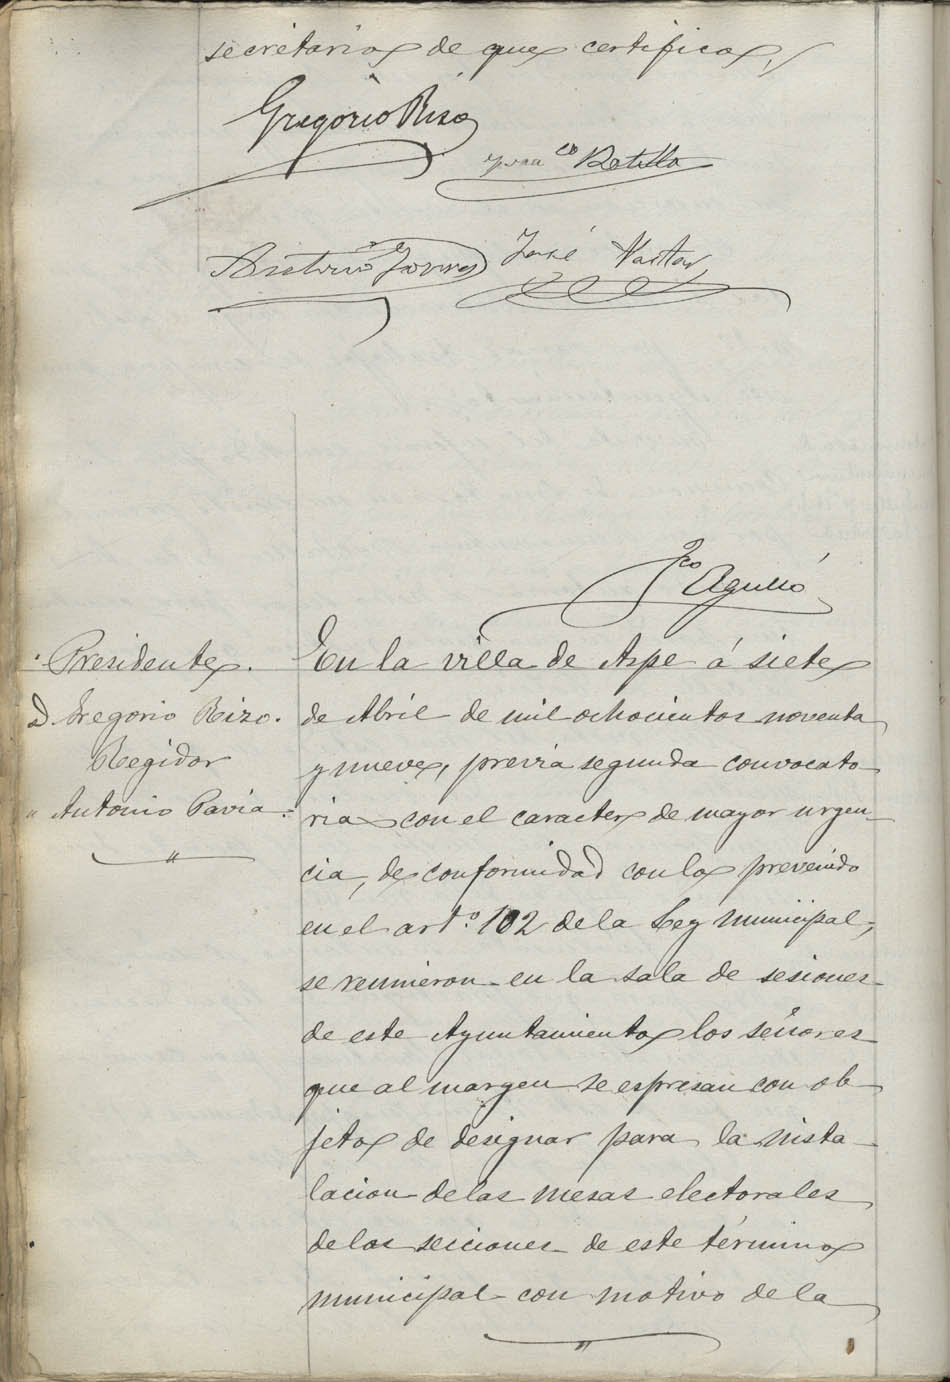 secretario de que certifico,
Gregorio Rizo
Franco Botella
Antonio Torres José Pastor
Fco Agulló
Presidente.
D. Gregorio Rizo.
Regidor
" Antonio Pavia.
En la villa de Aspe á siete
de Abril de mil ochocientos noventa
y nueve, previa segunda convocato-
ria con el caracter de mayor urgen-
cia, de conformidad con lo prevenido
en el artº. 102 de la Ley Municipal,
se reunieron en la sala de sesiones
de este Ayuntamiento los señores
que al margen se espresan con ob-
jeto de designar para la insta-
lacion de las mesas electorales
de las secciones de este término
municipal con motivo de la